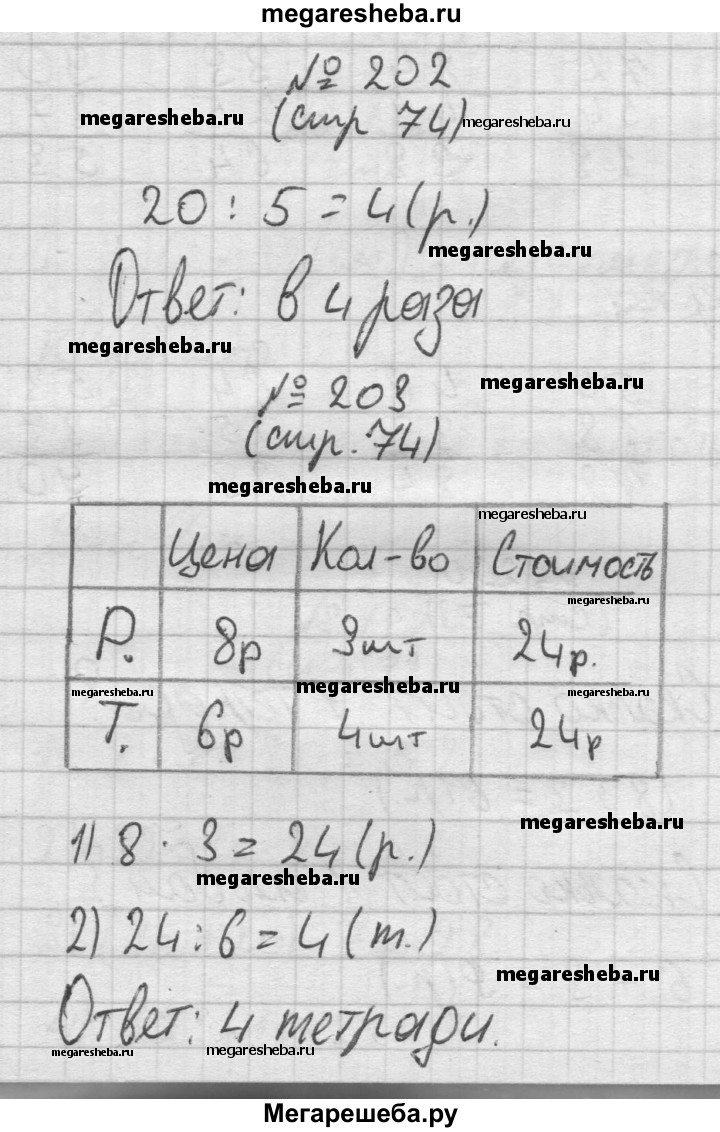 megaresheba.ru
№ 202
megaresheba.ru (стр 74) megaresheba.ru
20 : 5 = 4 (р.)
megaresheba.ru
Ответ: в 4 раза
megaresheba.ru
№ 203 megaresheba.ru
(стр. 74)
megaresheba.ru
megaresheba.ru
Цена Кол-во Стоимость
megaresheba.ru
Р. 8р 3шт 24р.
megaresheba.ru megaresheba.ru megaresheba.ru
Т. 6р 4шт 24р
megaresheba.ru
1) 8 · 3 = 24 (р.)
megaresheba.ru
2) 24 : 6 = 4 (т.)
megaresheba.ru
Ответ: 4 тетради.
megaresheba.ru megaresheba.ru
Мегарешеба.ру